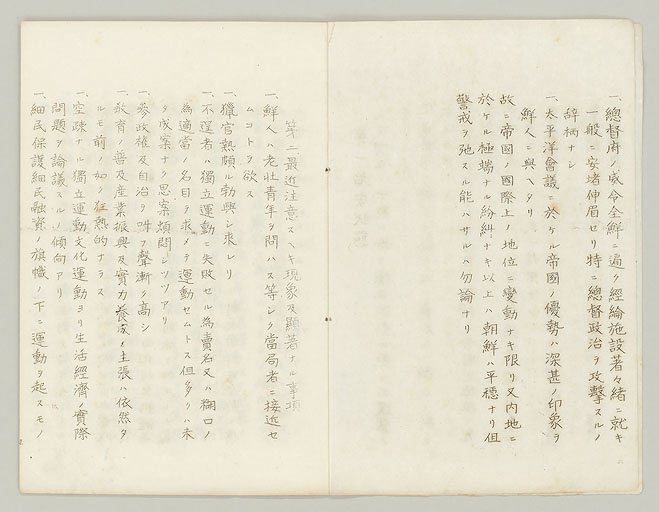 一、總督府ノ威令全鮮ニ遍ク經綸施設著々緖ニ就キ
一般ニ安堵伸眉セリ特ニ總督政治ヲ攻擊スルノ
辭柄ナシ
一、太平洋會議ニ於ケル帝國ノ優勢ハ深甚ノ印象ヲ
鮮人ニ與ヘタリ
故ニ帝國ノ國際上ノ地位ニ變動ナキ限リ又內地ニ
於ケル極端ナル紛糾ナキ以上ハ朝鮮ハ平穩ナリ但
警戒ヲ弛スル能ハサルハ勿論ナリ
第二最近注意スヘキ現象及顯著ナル事項
一、鮮人ハ老壯青年ヲ問ハス等シク當局者ニ接近セ
ムコトヲ欲ス
一、獵官熱頗ル勃興シ來レリ
一、不逞者ハ獨立運動ニ失敗セル為賣名又ハ糊口ノ
為適當ノ名目ヲ求メテ運動セムトス但多クハ未
タ成案ナク思案煩悶シツツアリ
一、參政權及自治ヲ叫フ聲漸ク高シ
一、敎育ノ普及産業振興及實力養成ノ主張ハ依然タ
ルモ前ノ如ク狂熱的ナラス
一、空疎ナル獨立運動文化運動ヨリ生活經濟ノ實際
問題ヲ論議スルノ傾向アリ
一、細民保護細民融資ノ旗幟ノ下ニ運動ヲ起スモノ